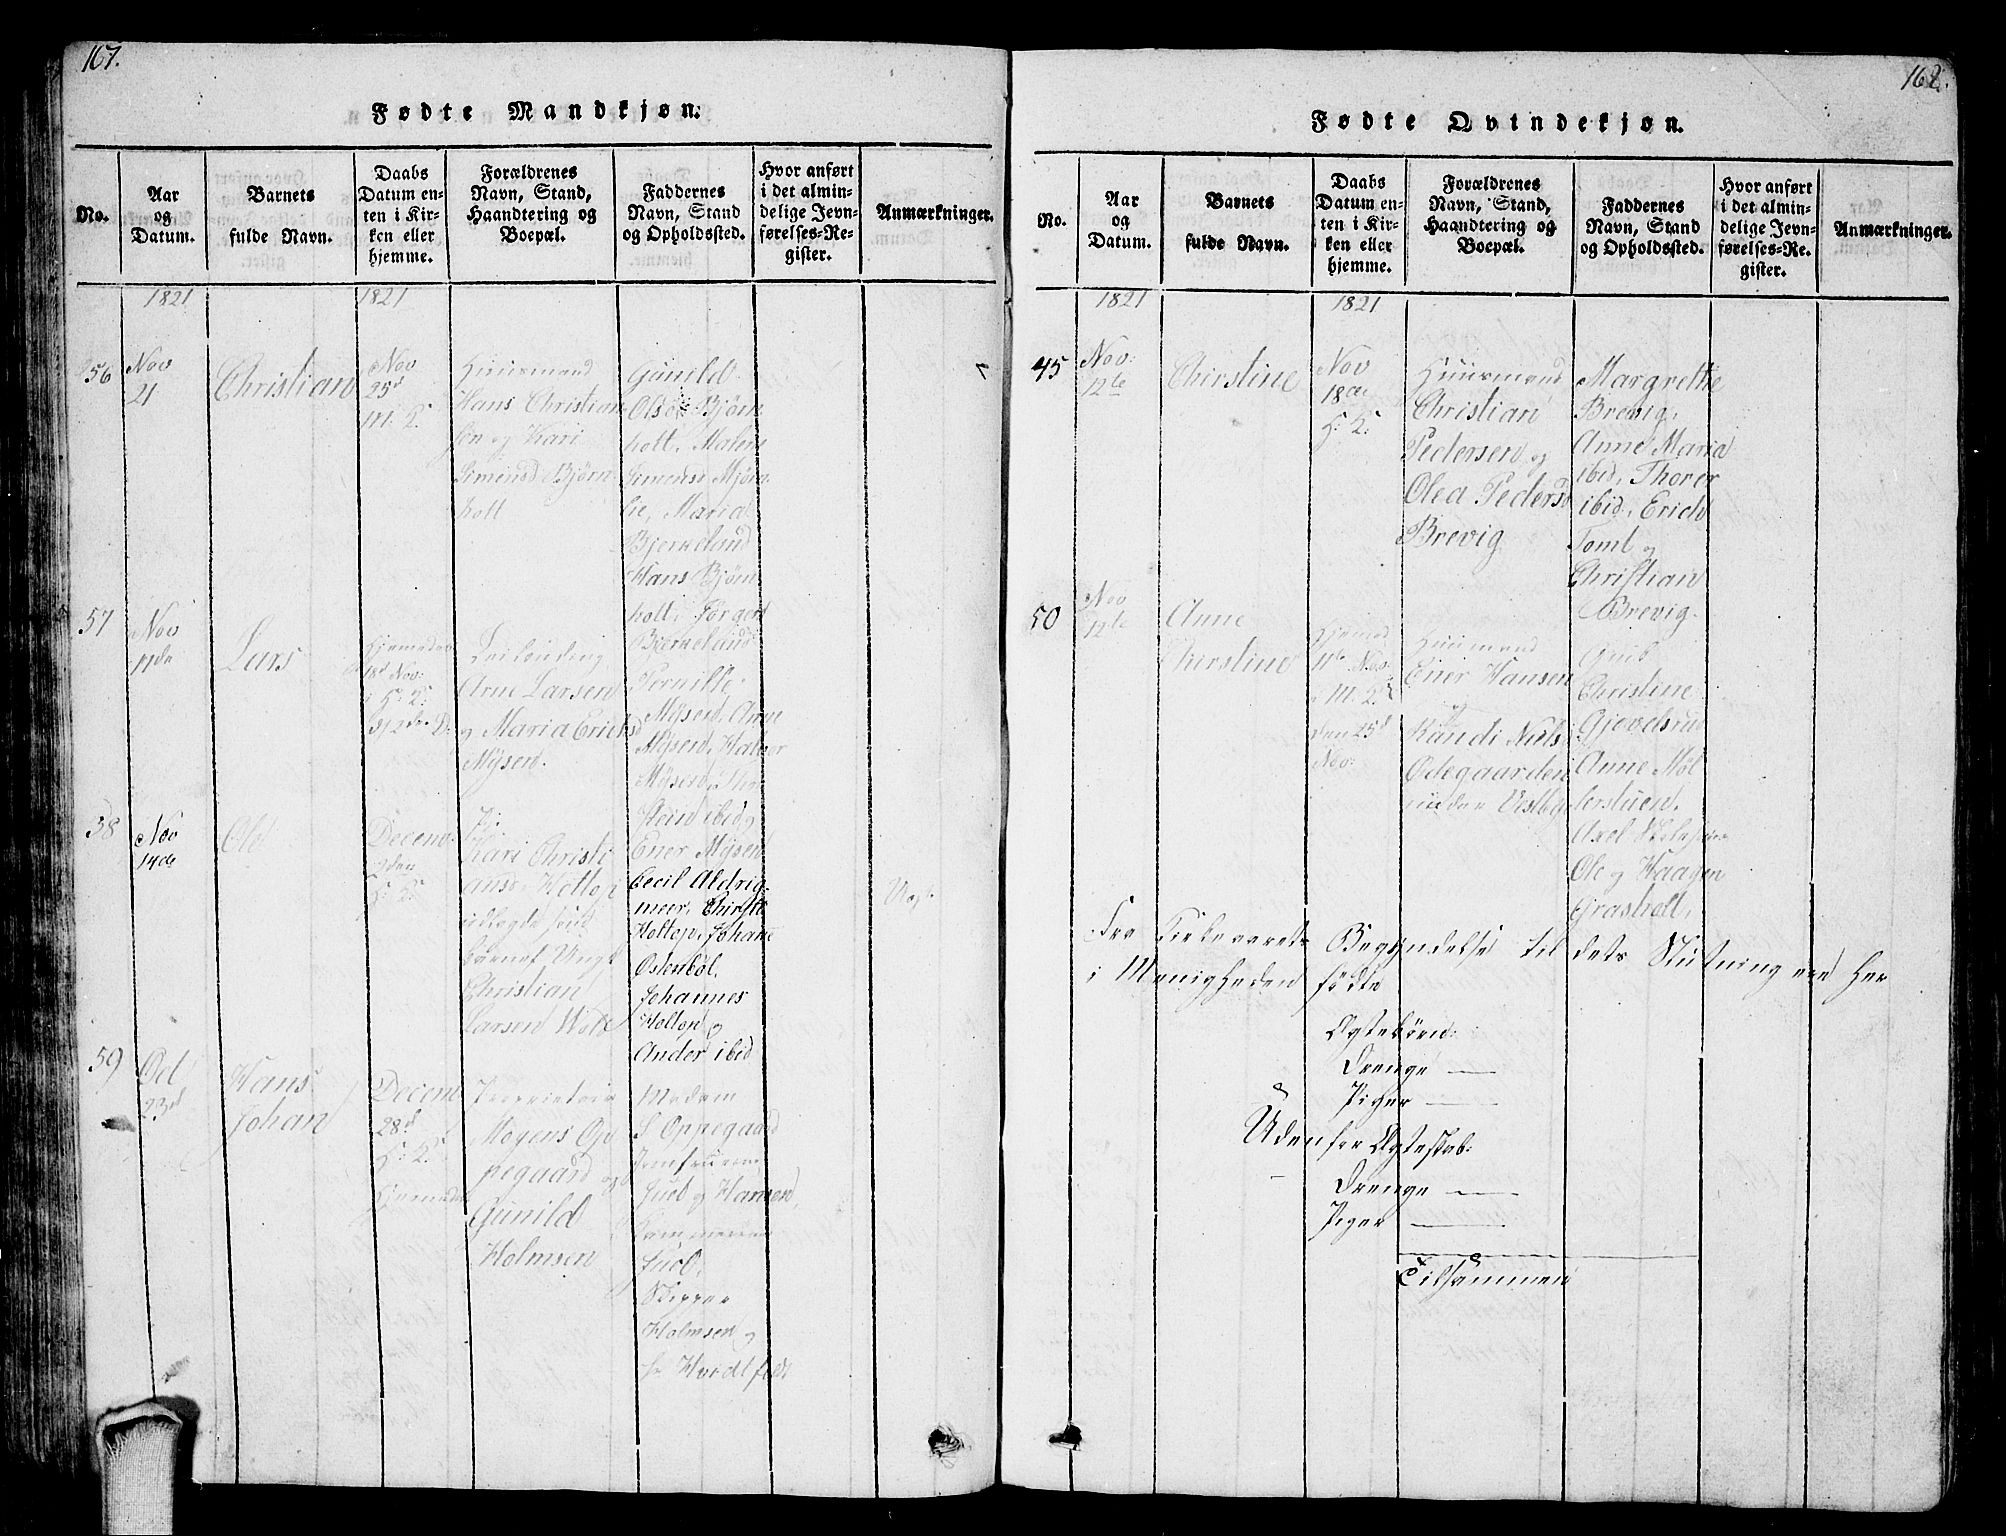 167.
Fødte Mandkjøn.
No.
Aar
og
Datum.
Barnets
fulde Navn.
Daabs
Datum en-
ten i Kir-
ken eller
hjemme.
Forældrenes
Navn, Stand,
Haandtering og
Boepæl.
Faddernes
Navn, Stand
og Opholdssted.
Hvor anført
i det almin-
delige Jevn-
førelses-Re-
gister.
Anmærkninger.
1821
1821
56
Nov
21
Christian
Nov
25d
M. K.
Huusmand
Hans Christian
sen og Kari
Simensd Bjørn
holt
Gunild
Olsd Bjørn
holt, Malene
Simensd Mjøn
lie, Maria
Bjerkeland
Hans Bjørn
holt, Torger
Bjerkeland
57
Nov
11de
Lars
Hjemedøbt
18d Nov:
i H: K:
Leilending
Arne Larsen
og Maria Erichsd
Mysen.
Pernille
Mysen, Anne
Mysen, Halvor
Mysen,
Stein ibid og
Ener Mysen
58
Nov
14de
Ole
Decem
2den
H: K:
Pi:
Kari Christi
ansd. Holtop
udlagde som
barnef Ungk
Christian
Larsen
Cecil Aldrig
meer, Chirste
Holtop, Johane
Ostenbøl,
Johannes
Holtop og
Ander ibid
59
Oct
23d
Hans
Johan
Decem
28d
H: K:
Hjemedøbt
Proprietair
Mogens Op
pegaard og
Gunild
Holmsen
Madam
S Oppegaard
Jomfruerne
Juel og Hansen,
Juel,
Skipper
Holmsen og
Hr Hvidtfeldt
162.
Fødte Qvindekjøn.
No.
Aar
og
Datum.
Barnets
fulde Navn.
Daabs
Datum en-
ten i Kir-
ken eller
hjemme.
Forældrenes
Navn, Stand,
Haandtering og
Boepæl.
Faddernes
Navn, Stand
og Opholdssted.
Hvor anført
i det almin-
delige Jevn-
førelses-Re-
gister.
Anmærkninger.
1821
1821
45
Nov:
12te
Chirstine
Nov
18de
H: K:
Huusmand
Christian
Pedersen og
Olea Pedersd
Brevig
Margrethe
Brevig,
Anne Maria
ibid, Thorer
ibid, Erich
Tomt og
Christian
Brevig.
50
Nov
12te
Anne
Chirstine
Hjemed
11te Nov:
i M: K:
den 25d
Nov:
Huusmand
Ener Hansen
og
Randi Niels
Ødegaarden
under Vestby
Gub
Christine
Gjevelsrud
Anne Møl
lerstuen,
Axel
Ole og Haagen
Grasholt,
Fra Kirkeaarets Begyndelse til dets Slutning ere her
i Menigheden fødte
Ægtebørn:
Drenge —
Piger —
Udenfor Ægteskab:
Drenge —
Piger —
Tilsammen